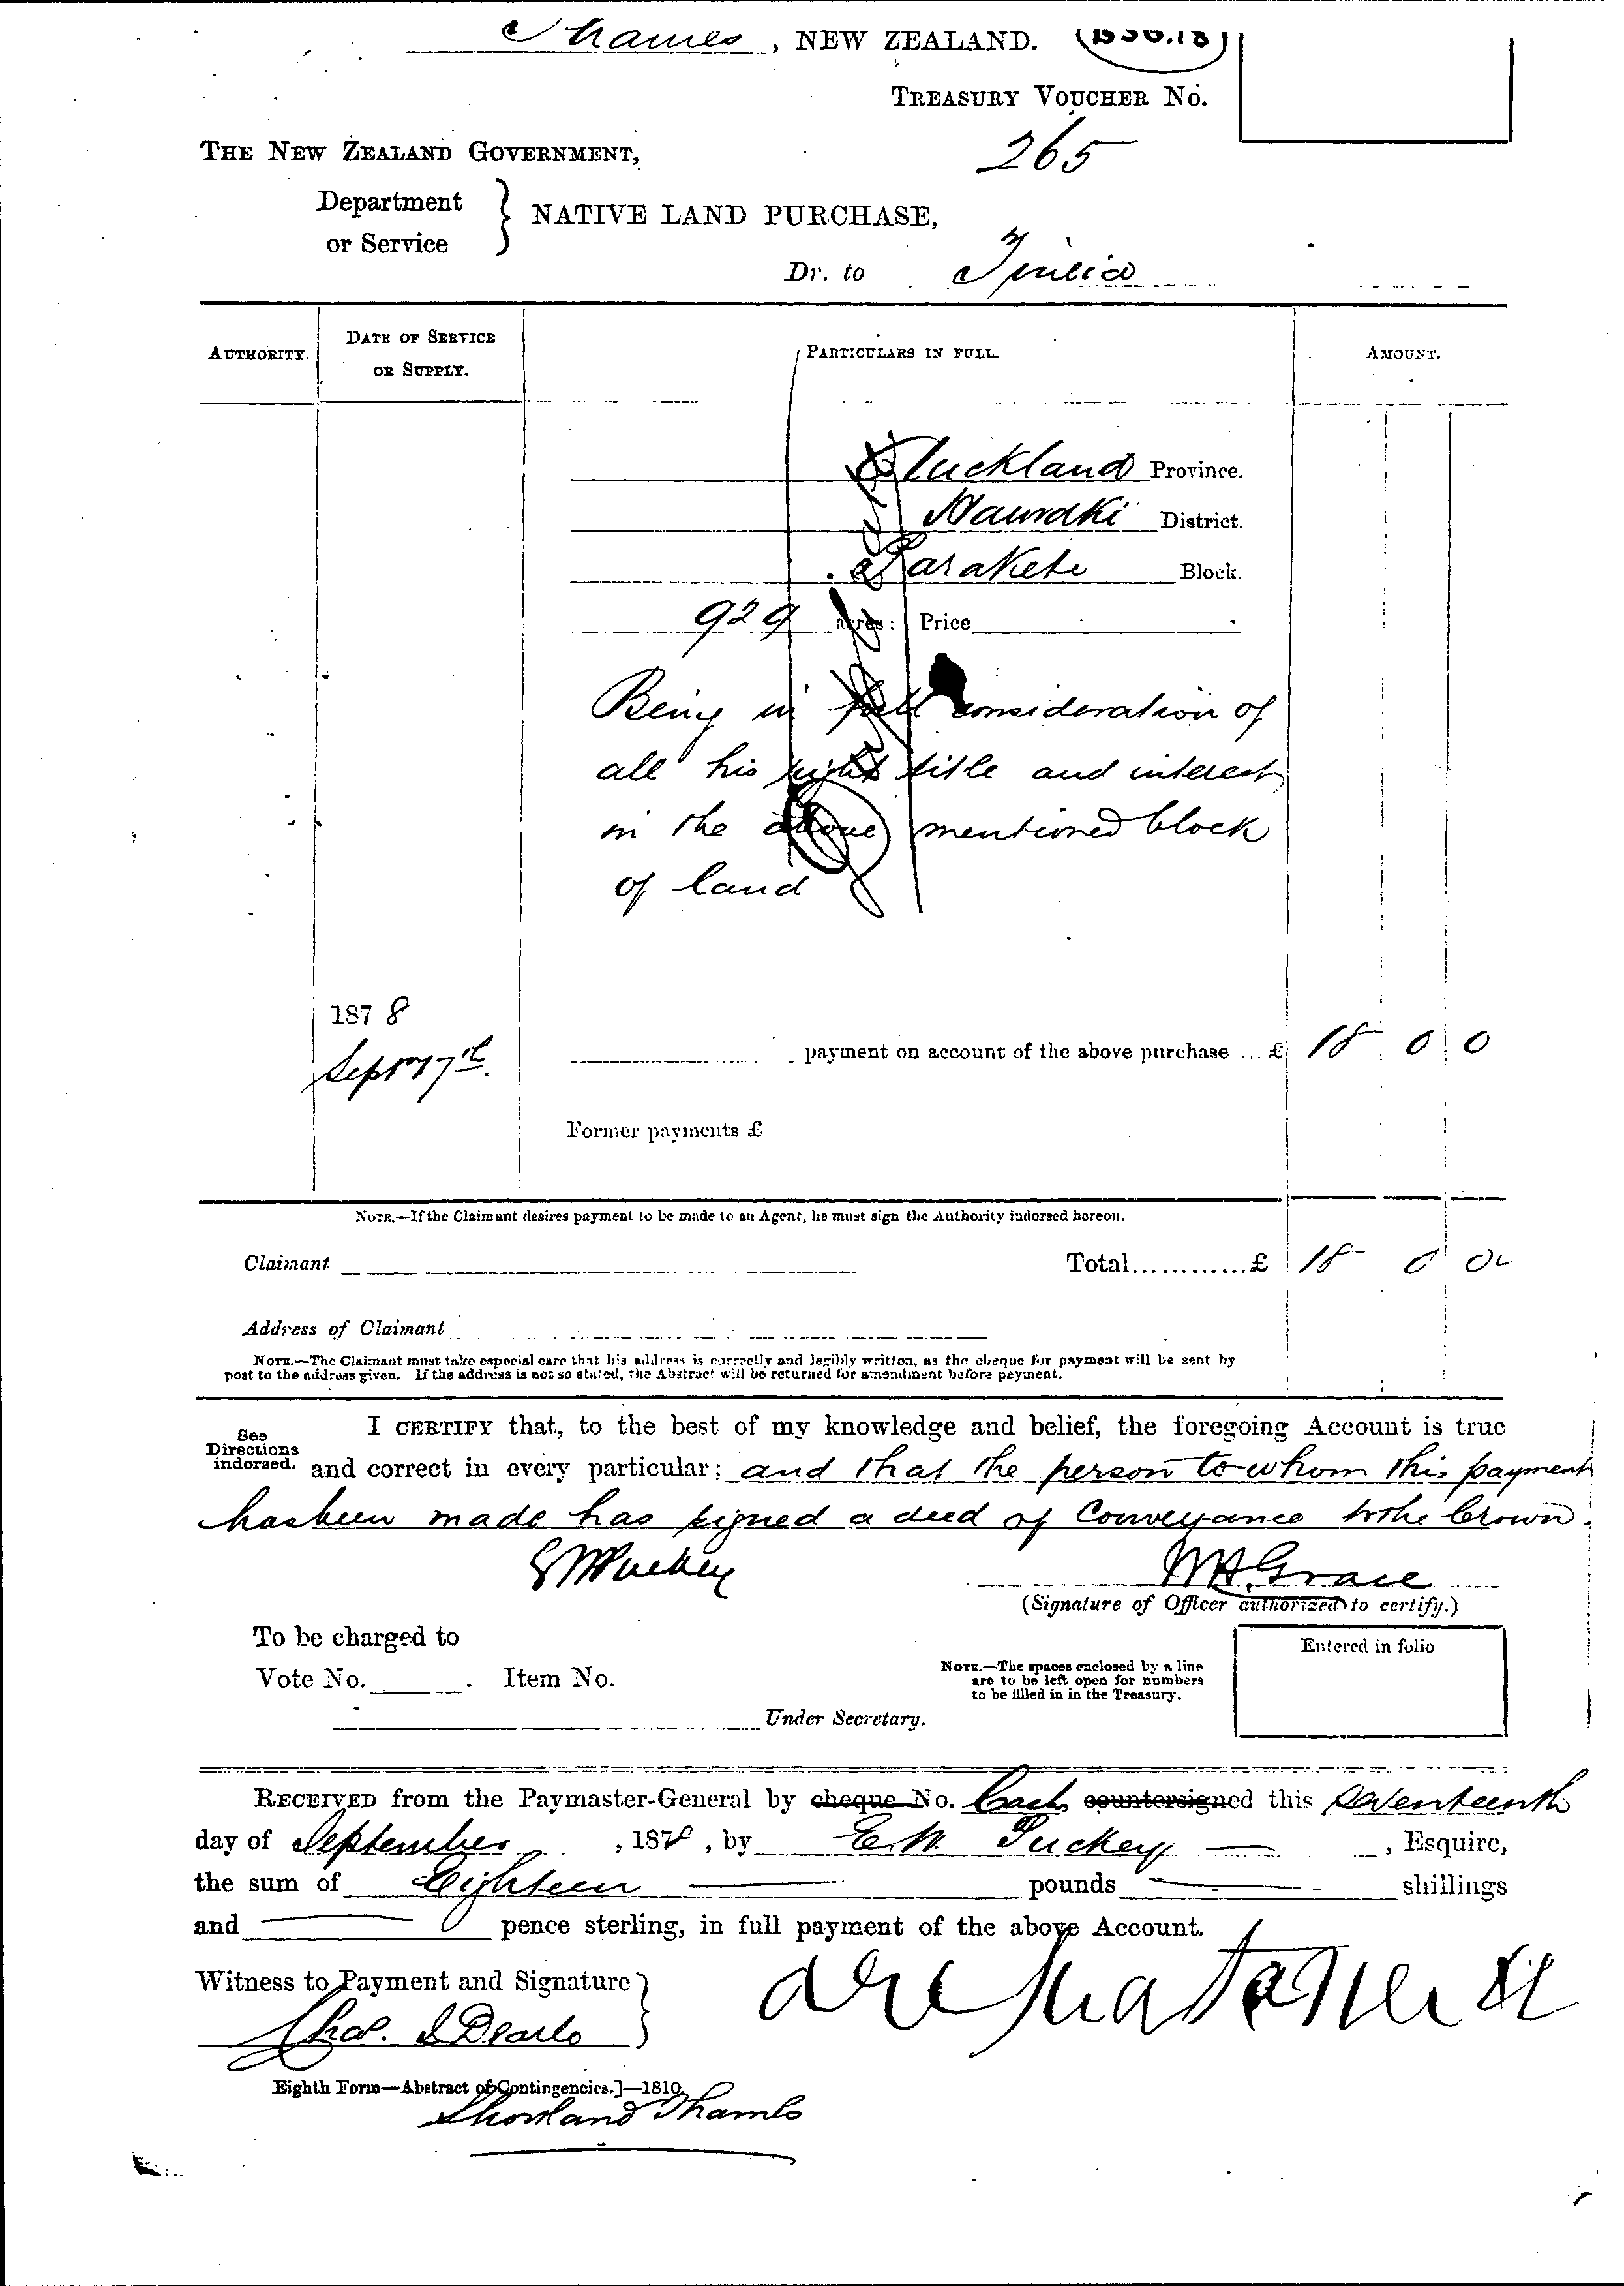 Thames, NEW ZEALAND.
TREASURY VOUCHER No.
265
THE NEW ZEALAND GOVERNMENT,
Department or Service } NATIVE LAND PURCHASE,
Dr. to
AUTHORITY. DATE OF SERVICE OR SUPPLY. PARTICULARS IN FULL. AMOUNT.
Auckland Province.
Hauraki District.
Block.
929 acres: Price
Being in full consideration of
all his right title and interest
in the above mentioned block
of land
1878
Sept 17th. payment on account of the above purchase ... £ 18 0 0
Former payments £
NOTE.—If the Claimant desires payment to be made to an Agent, he must sign the Authority indorsed hereon.
Claimant Total............£ 18 0 0
Address of Claimant
NOTE.—The Claimant must take especial care that his address is correctly and legibly written, as the cheque for payment will be sent by
post to the address given. If the address is not so stated, the Abstract will be returned for amendment before payment.
See Directions indorsed.
I CERTIFY that, to the best of my knowledge and belief, the foregoing Account is true
and correct in every particular; and that the person to whom this payment
has been made has signed a deed of Conveyance to the Crown.
E W Puckey W H Grace
(Signature of Officer authorized to certify.)
To be charged to
Vote No. . Item No.
Under Secretary.
NOTE.—The spaces enclosed by a line
are to be left open for numbers
to be filled in in the Treasury.
Entered in folio
RECEIVED from the Paymaster-General by cheque No. Cash countersigned this Seventeenth
day of September, 1878, by E. W. Puckey, Esquire,
the sum of Eighteen pounds shillings
and pence sterling, in full payment of the above Account.
Witness to Payment and Signature }
Eighth Form—Abstract of Contingencies.]—1810.
Shortland Thames